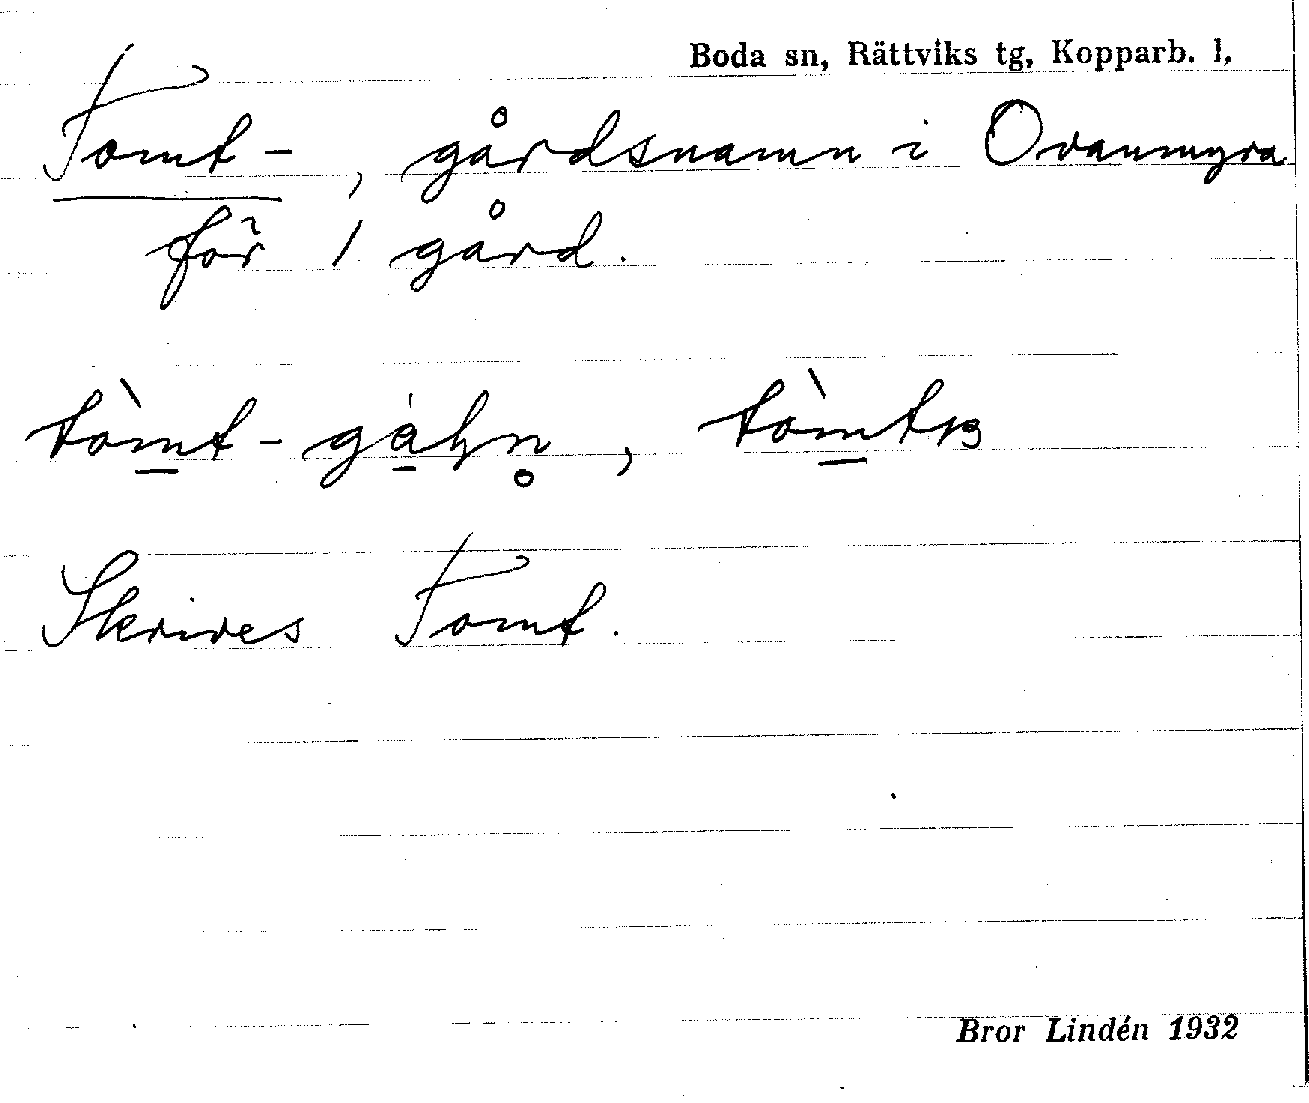 Boda sn, Rättviks tg, Kopparb. l.
Tomt-, gårdsnamn i Ovanmyra
för 1 gård.
tòmt-
Skrives Tomt.
Bror Lindén 1932